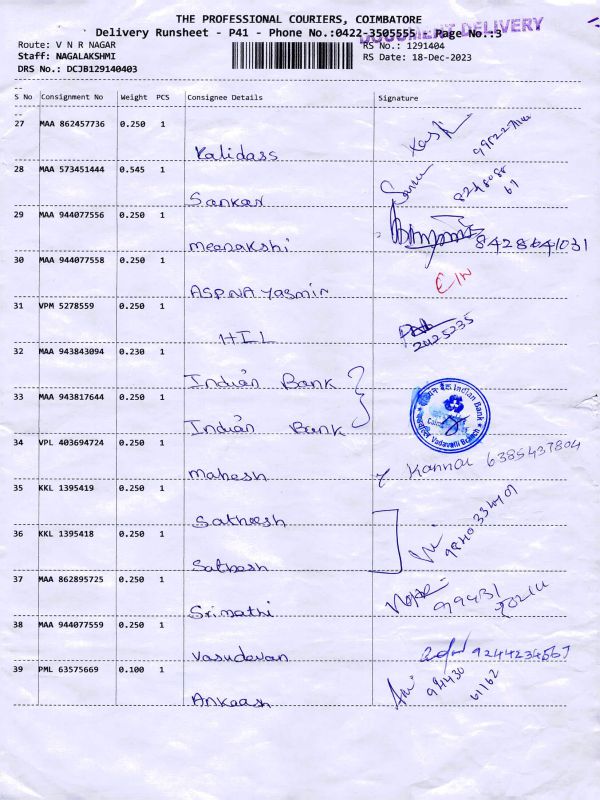 THE PROFESSIONAL COURIERS, COIMBATORE
DOCUMENT DELIVERY
Delivery Runsheet - P41 - Phone No.:0422-3505555 Page No.:3
Route: V N R NAGAR
RS No.: 1291404
Staff: NAGALAKSHMI
RS Date: 18-Dec-2023
DRS No.: DCJB129140403
S No Consignment No Weight PCS Consignee Details Signature
27 MAA 862457736 0.250 1
Kalidass
28 MAA 573451444 0.545 1
Sankar
29 MAA 944077556 0.250 1
Meenakshi 8428641031
30 MAA 944077558 0.250 1
ASPNA Yasmin
31 VPM 5278559 0.250 1
HIL
32 MAA 943843094 0.230 1
Indian Bank
33 MAA 943817644 0.250 1
Indian Bank
Indian Bank
Vadavalli Branch
34 VPL 403694724 0.250 1
Mahesh Kannar 6385437804
35 KKL 1395419 0.250 1
Satheesh
36 KKL 1395418 0.250 1
Sathesh
37 MAA 862895725 0.250 1
Srimathi
38 MAA 944077559 0.250 1
Vasudevan 9244234567
39 PML 63575669 0.100 1
Ankaash